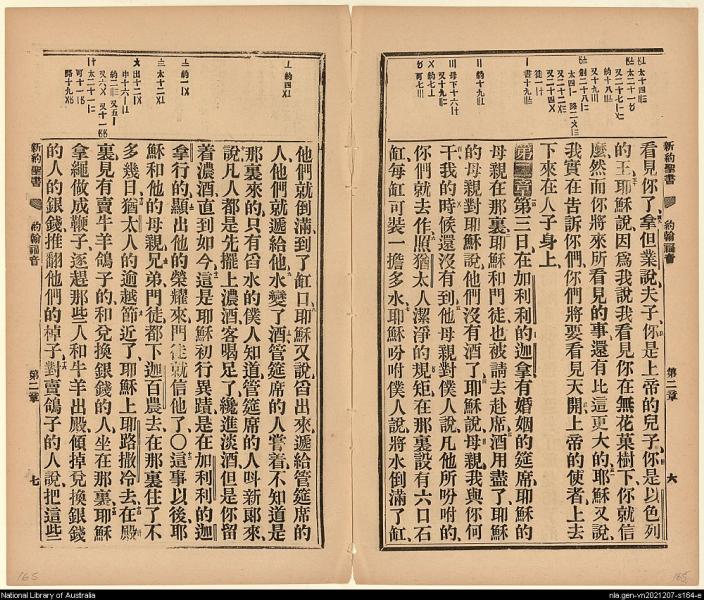 新約聖書 約翰福音 第二章 六
看見你了拿但業說夫子你是上帝的兒子你是以色列
的王耶穌說因爲我說我看見你在無花菓樹下你就信
麼然而你將來所看見的事還有比這更大的耶穌又說
我實在告訴你們你們將要看見天開上帝的使者上去
下來在人子身上
第二章第三日在加利利的迦拿有婚姻的筵席耶穌的
母親在那裏耶穌和門徒也被請去赴席酒用盡了耶穌
的母親對耶穌說他們沒有酒了耶穌說母親我與你何
干我的時候還沒有到他母親對僕人說凡他所吩咐的
你們就去作照猶太人潔淨的規矩在那裏設有六口石
缸每缸可裝一擔多水耶穌吩咐僕人說將水倒滿了缸
他們就倒滿到了缸口耶穌又說舀出來遞給管筵席的
人他們就遞給他水變了酒管筵席的人嘗着不知道是
那裏來的只有舀水的僕人知道管筵席的人呌新郞來
說凡人都是先擺上濃酒客喝足了纔進淡酒但是你留
着濃酒直到如今這是耶穌初行異蹟是在加利利的迦
拿行的顯出他的榮耀來門徒就信他了〇這事以後耶
穌和他的母親兄弟門徒都下迦百農去在那裏住了不
多幾日猶太人的逾越節近了耶穌上耶路撒冷去在殿
裏見有賣牛羊鴿子的和兌換銀錢的人坐在那裏耶穌
拿繩做成鞭子逐趕那些人和牛羊出殿傾掉兌換銀錢
的人的銀錢推翻他們的棹子對賣鴿子的人說把這些
新約聖書 約翰福音 第二章 七
165
165
National Library of Australia
nla.gen-vn2021207-s164-e